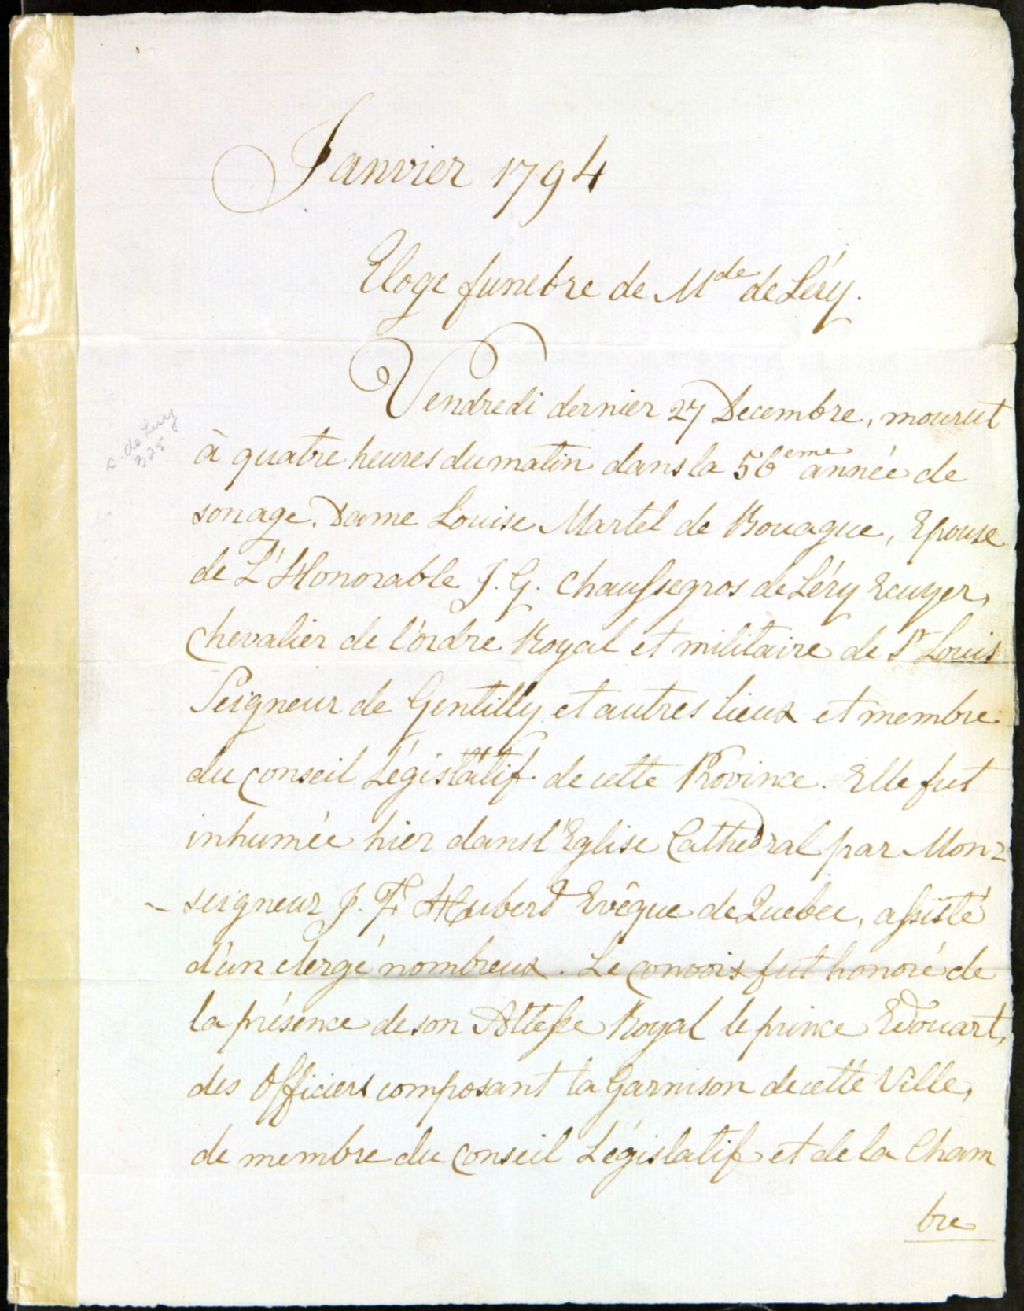 Janvier 1794
Eloge funebre de Mde de Léry.
Vendredi dernier 27 Decembre, mourut
à quatre heures du matin dans la 56eme année de
son age. Dame Louise Martel de Brouague, Epouse
de L'Honorable J. G. Chaussegros de Léry Ecuyer,
Chevalier de l'ordre Royal et militaire de St Louis
Seigneur de Gentilly et autres lieux et membre
du Conseil Législatif de cette Province. Elle fut
inhumée hier dans l'Eglise Cathedral par Mon=
seigneur J. F. Hubert Evêque de Quebec, assisté
d'un clergé nombreux. Le convois fut honoré de
la présence de son Altesse Royal le prince Edouart,
des Officiers composant la Garnison de cette Ville,
de membre du Conseil Législatif et de la Cham
bre
de Lery
325